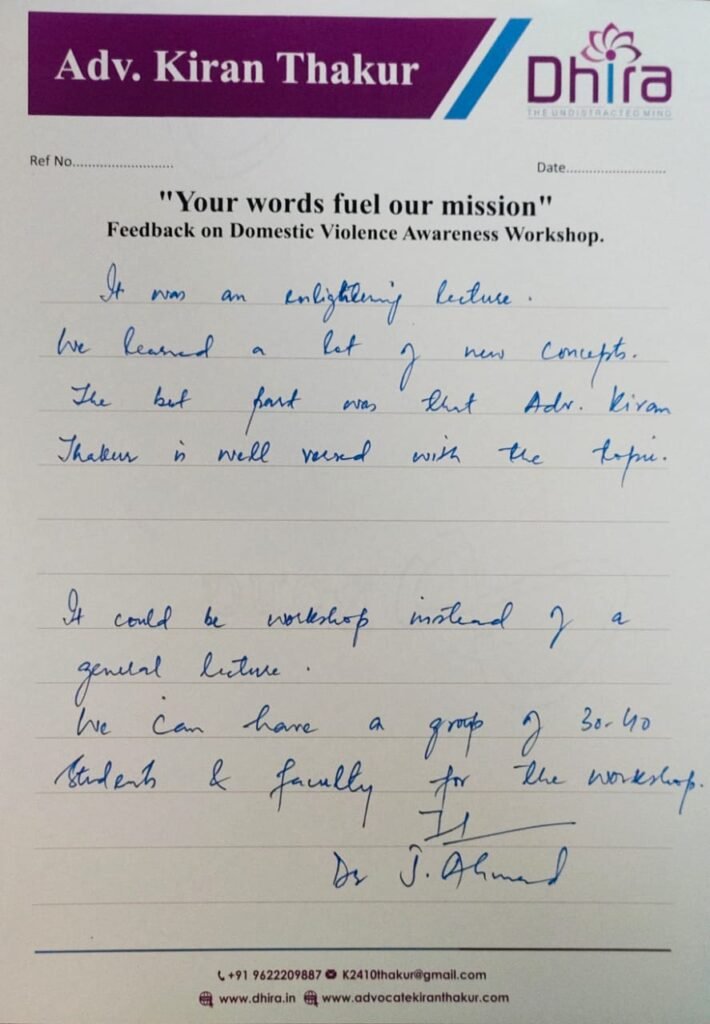 Adv. Kiran Thakur
Dhira
THE UNDISTRACTED MIND
Ref No..........................
Date..........................
"Your words fuel our mission"
Feedback on Domestic Violence Awareness Workshop.
It was an enlightening lecture.
We learned a lot of new concepts.
The best part was that Adv. Kiran
Thakur is well versed with the topic.
It could be workshop instead of a
general lecture.
We can have a group of 30-40
Students & faculty for the workshop.
Dr J. Ahmad
+91 9622209887 K2410thakur@gmail.com
www.dhira.in www.advocatekiranthakur.com